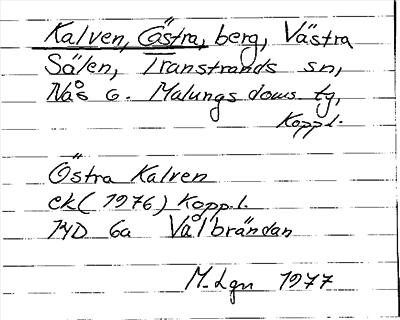 Kalven, Östra, berg, Västra
Sälen, Transtrands sn,
Nås o. Malungs doms. tg,
Koppl.
Östra Kalven
ek (1976) Koppl.
13D 6a Vålbrändan
M. Lgn 1977